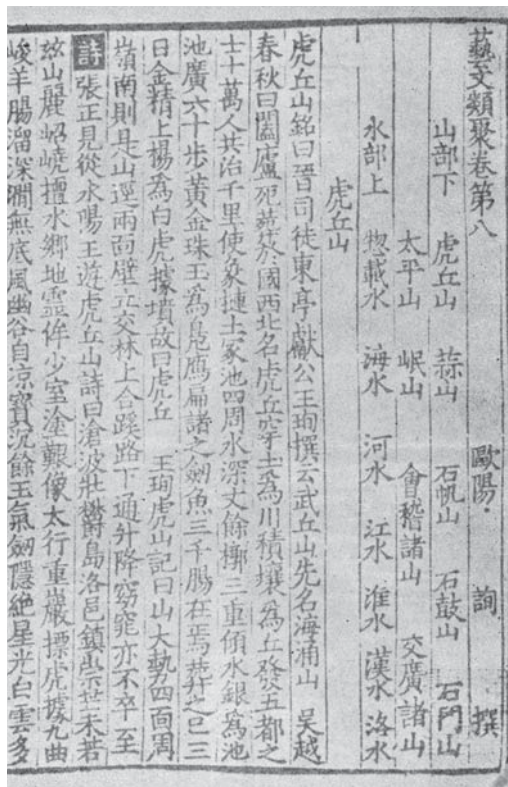 藝文類聚卷第八 歐陽 詢 撰
山部下 虎丘山 蒜山 石帆山 石鼓山 石門山
太平山 岷山 會稽諸山 交廣諸山
水部上 惣載水 海水 河水 江水 淮水 漢水 洛水
虎丘山
虎丘山銘曰晉司徒東亭獻公王珣撰云武丘山先名海涌山 吳越
春秋曰闔廬死葬於國西北名虎丘穿土爲川積壤爲丘發五都之
士十萬人共治千里使象摙土冢池四周水深丈餘槨三重傾水銀爲池
池廣六十步黄金珠玉爲鳧鴈扁諸之劒魚三千腸在焉葬之已三
日金精上楊爲白虎據墳故曰虎丘 王珣虎山記曰山大勢四面周
嶺南則是山逕兩面壁立交林上合蹊路下通升降窈窕亦不卒至
詩 張正見從永陽王遊虎丘山詩曰滄波壯鬱島洛邑鎮崇芒未若
玆山麗岧嶢擅水鄉地靈侔少室塗艱像太行重巖摽虎據九曲
峻羊腸溜深澗無底風幽谷自凉寶沉餘玉氣劒隱絶星光白雲多